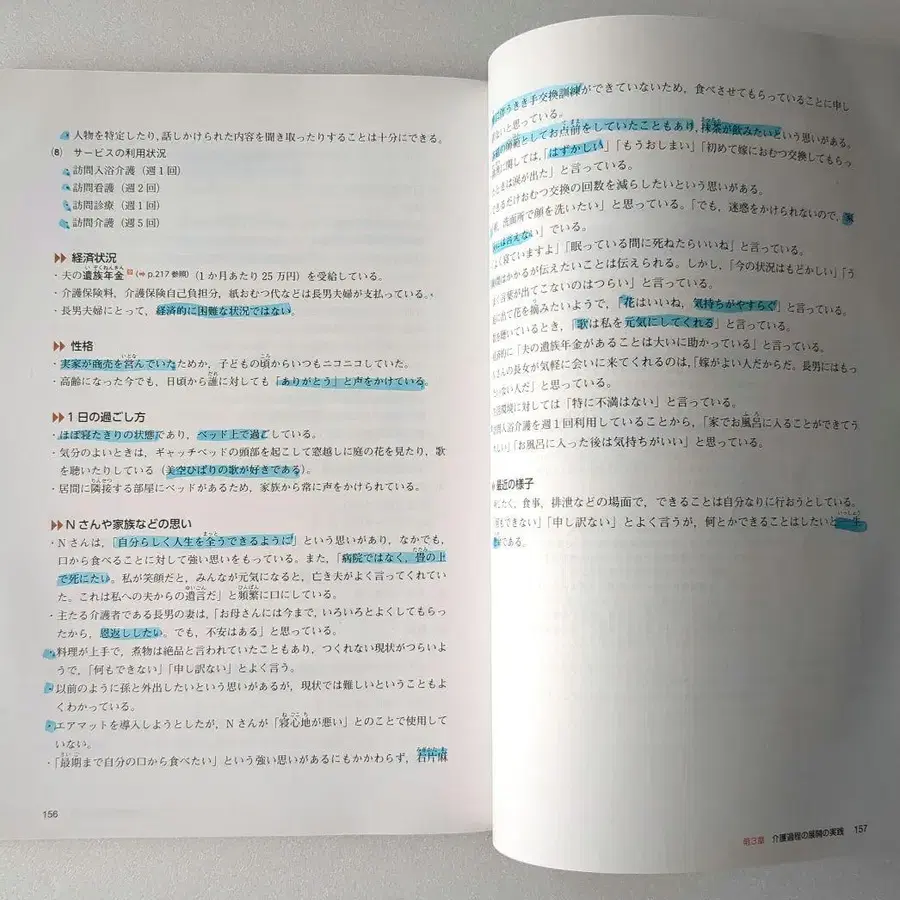 ・人物を特定したり，話しかけられた内容を聞き取ったりすることは十分にできる。
(8) サービスの利用状況
・訪問入浴介護（週1回）
・訪問看護（週2回）
・訪問診療（週1回）
・訪問介護（週5回）
経済状況
・夫の遺族年金（➡p.217参照）（1か月あたり25万円）を受給している。
・介護保険料，介護保険自己負担分，紙おむつ代などは長男夫婦が支払っている。
・長男夫婦にとって，経済的に困難な状況ではない。
性格
・実家が商売を営んでいたためか，子どもの頃からいつもニコニコしていた。
・高齢になった今でも，日頃から誰に対しても「ありがとう」と声をかけている。
1日の過ごし方
・ほぼ寝たきりの状態であり，ベッド上で過ごしている。
・気分のよいときは，ギャッチベッドの頭部を起こして窓越しに庭の花を見たり，歌
を聴いたりしている（美空ひばりの歌が好きである）。
・居間に隣接する部屋にベッドがあるため，家族から常に声をかけられている。
Nさんや家族などの思い
・Nさんは，「自分らしく人生を全うできるように」という思いがあり，なかでも，
口から食べることに対して強い思いをもっている。また，「病院ではなく，畳の上
で死にたい。私が笑顔だと，みんなが元気になると，亡き夫がよく言ってくれてい
た。これは私への夫からの遺言だ」と頻繁に口にしている。
・主たる介護者である長男の妻は，「お母さんには今まで，いろいろとよくしてもらっ
たから，恩返ししたい。でも，不安はある」と思っている。
・料理が上手で，煮物は絶品と言われていたこともあり，つくれない現状がつらいよ
うで，「何もできない」「申し訳ない」とよく言う。
・以前のように孫と外出したいという思いがあるが，現状では難しいということもよ
くわかっている。
・エアマットを導入しようとしたが，Nさんが「寝心地が悪い」とのことで使用して
いない。
・「最期まで自分の口から食べたい」という強い思いがあるにもかかわらず，右片麻
156
きき手交換訓練ができていないため，食べさせてもらっていることに申し
ないと思っている。
師範としてお点前をしていたこともあり，抹茶が飲みたいという思いがある。
に関しては，「はずかしい」「もうおしまい」「初めて嫁におむつ交換してもらっ
たときは涙が出た」と言っている。
できるだけおむつ交換の回数を減らしたいという思いがある。
，洗面所で顔を洗いたい」と思っている。「でも，迷惑をかけられないので，家
には言えない」でいる。
よく寝ていますよ」「眠っている間に死ねたらいいね」と言っている。
間はかかるが伝えたいことは伝えられる。しかし，「今の状況はもどかしい」「う
言葉が出てこないのはつらい」と言っている。
に出て花を摘みたいようで，「花はいいね，気持ちがやすらぐ」と言っている。
聴いているとき，「歌は私を元気にしてくれる」と言っている。
的に「夫の遺族年金があることは大いに助かっている」と言っている。
さんの長女が気軽に会いに来てくれるのは，「嫁がよい人だからだ。長男にはもっ
いない人だ」と思っている。
環境に対しては「特に不満はない」と言っている。
入浴介護を週1回利用していることから，「家でお風呂に入ることができてう
しい」「お風呂に入った後は気持ちがいい」と思っている。
最近の様子
したく，食事，排泄などの場面で，できることは自分なりに行おうとしている。
もできない」「申し訳ない」とよく言うが，何とかできることはしたいと一生
である。
第3章 介護過程の展開の実践 157